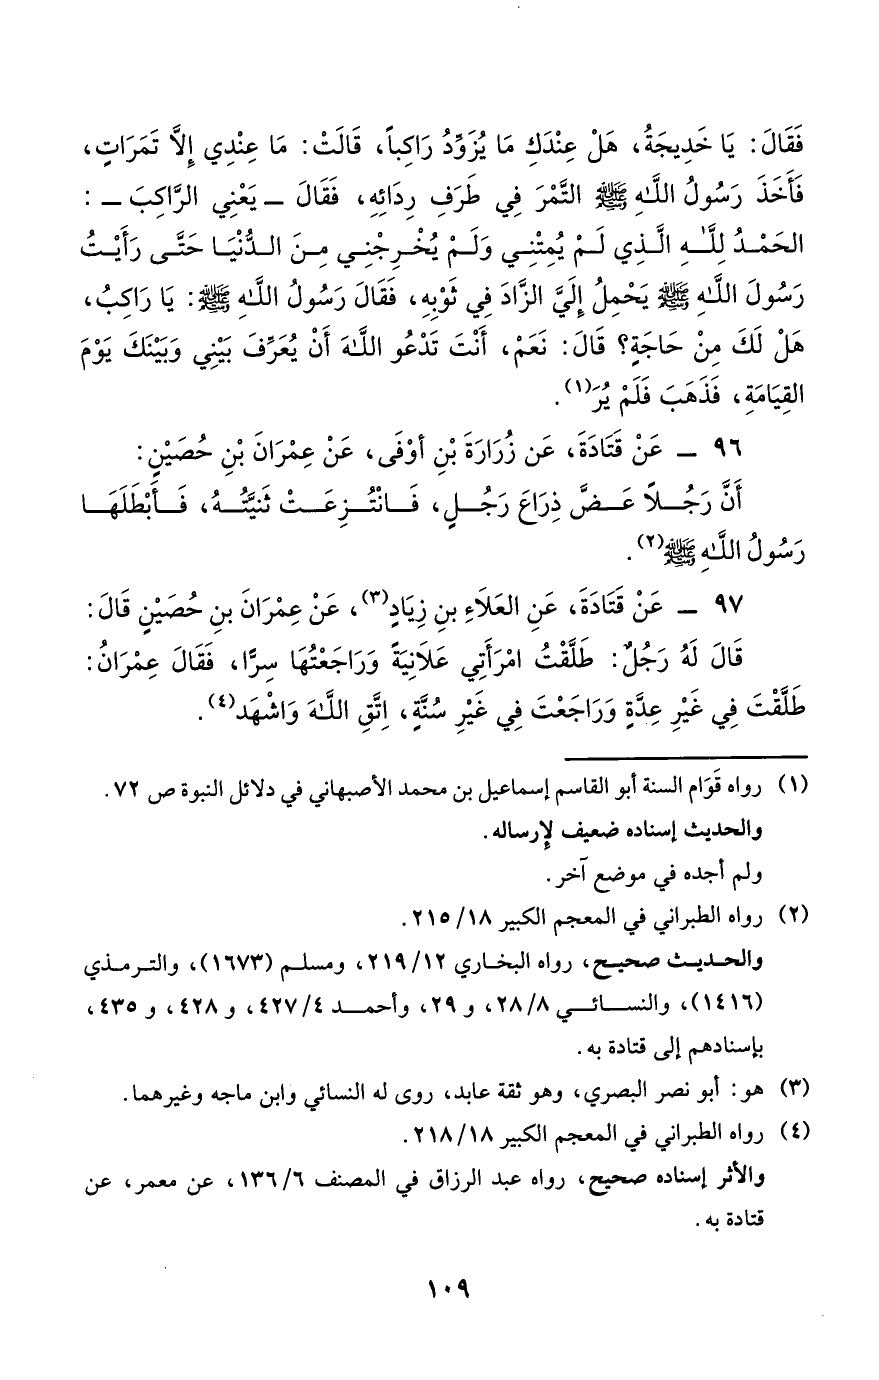 فَقَالَ: يَا خَدِيجَةُ، هَلْ عِنْدَكِ مَا يُزَوِّدُ رَاكِباً، قَالَتْ: مَا عِنْدِي إِلاَّ تَمَرَاتٍ،
فَأَخَذَ رَسُولُ اللَّهِ ﷺ التَّمْرَ فِي طَرَفِ رِدَائِهِ، فَقَالَ ــ يَعْنِي الرَّاكِبَ ــ :
الحَمْدُ لِلَّهِ الَّذِي لَمْ يُمِتْنِي وَلَمْ يُخْرِجْنِي مِنَ الدُّنْيَا حَتَّى رَأَيْتُ
رَسُولَ اللَّهِ ﷺ يَحْمِلُ إِلَيَّ الزَّادَ فِي ثَوْبِهِ، فَقَالَ رَسُولُ اللَّهِ ﷺ: يَا رَاكِبُ،
هَلْ لَكَ مِنْ حَاجَةٍ؟ قَالَ: نَعَمْ، أَنْتَ تَدْعُو اللَّهَ أَنْ يُعَرِّفَ بَيْنِي وَبَيْنَكَ يَوْمَ
القِيَامَةِ، فَذَهَبَ فَلَمْ يُرَ(١).
٩٦ ــ عَنْ قَتَادَةَ، عَن زُرَارَةَ بْنِ أَوْفَى، عَنْ عِمْرَانَ بْنِ حُصَيْنٍ:
أَنَّ رَجُلاً عَضَّ ذِرَاعَ رَجُلٍ، فَانْتُزِعَتْ ثَنِيَّتُهُ، فَأَبْطَلَهَا
رَسُولُ اللَّهِ ﷺ(٢).
٩٧ ــ عَنْ قَتَادَةَ، عَنِ العَلَاءِ بنِ زِيَادٍ(٣)، عَنْ عِمْرَانَ بنِ حُصَيْنٍ قَالَ:
قَالَ لَهُ رَجُلٌ: طَلَّقْتُ امْرَأَتِي عَلَانِيَةً وَرَاجَعْتُهَا سِرًّا، فَقَالَ عِمْرَانُ:
طَلَّقْتَ فِي غَيْرِ عِدَّةٍ وَرَاجَعْتَ فِي غَيْرِ سُنَّةٍ، اِتَّقِ اللَّهَ وَاشْهَد(٤).
(١) رواه قَوَام السنة أبو القاسم إسماعيل بن محمد الأصبهاني في دلائل النبوة ص ٧٢.
والحديث إسناده ضعيف لإرساله.
ولم أجده في موضع آخر.
(٢) رواه الطبراني في المعجم الكبير ١٨/ ٢١٥.
والحديث صحيح، رواه البخاري ١٢/ ٢١٩، ومسلم (١٦٧٣)، والترمذي
(١٤١٦)، والنسائي ٨/ ٢٨، و ٢٩، وأحمد ٤/ ٤٢٧، و ٤٢٨، و ٤٣٥،
بإسنادهم إلى قتادة به.
(٣) هو: أبو نصر البصري، وهو ثقة عابد، روى له النسائي وابن ماجه وغيرهما.
(٤) رواه الطبراني في المعجم الكبير ١٨/ ٢١٨.
والأثر إسناده صحيح، رواه عبد الرزاق في المصنف ٦/ ١٣٦، عن معمر، عن
قتادة به.
١٠٩